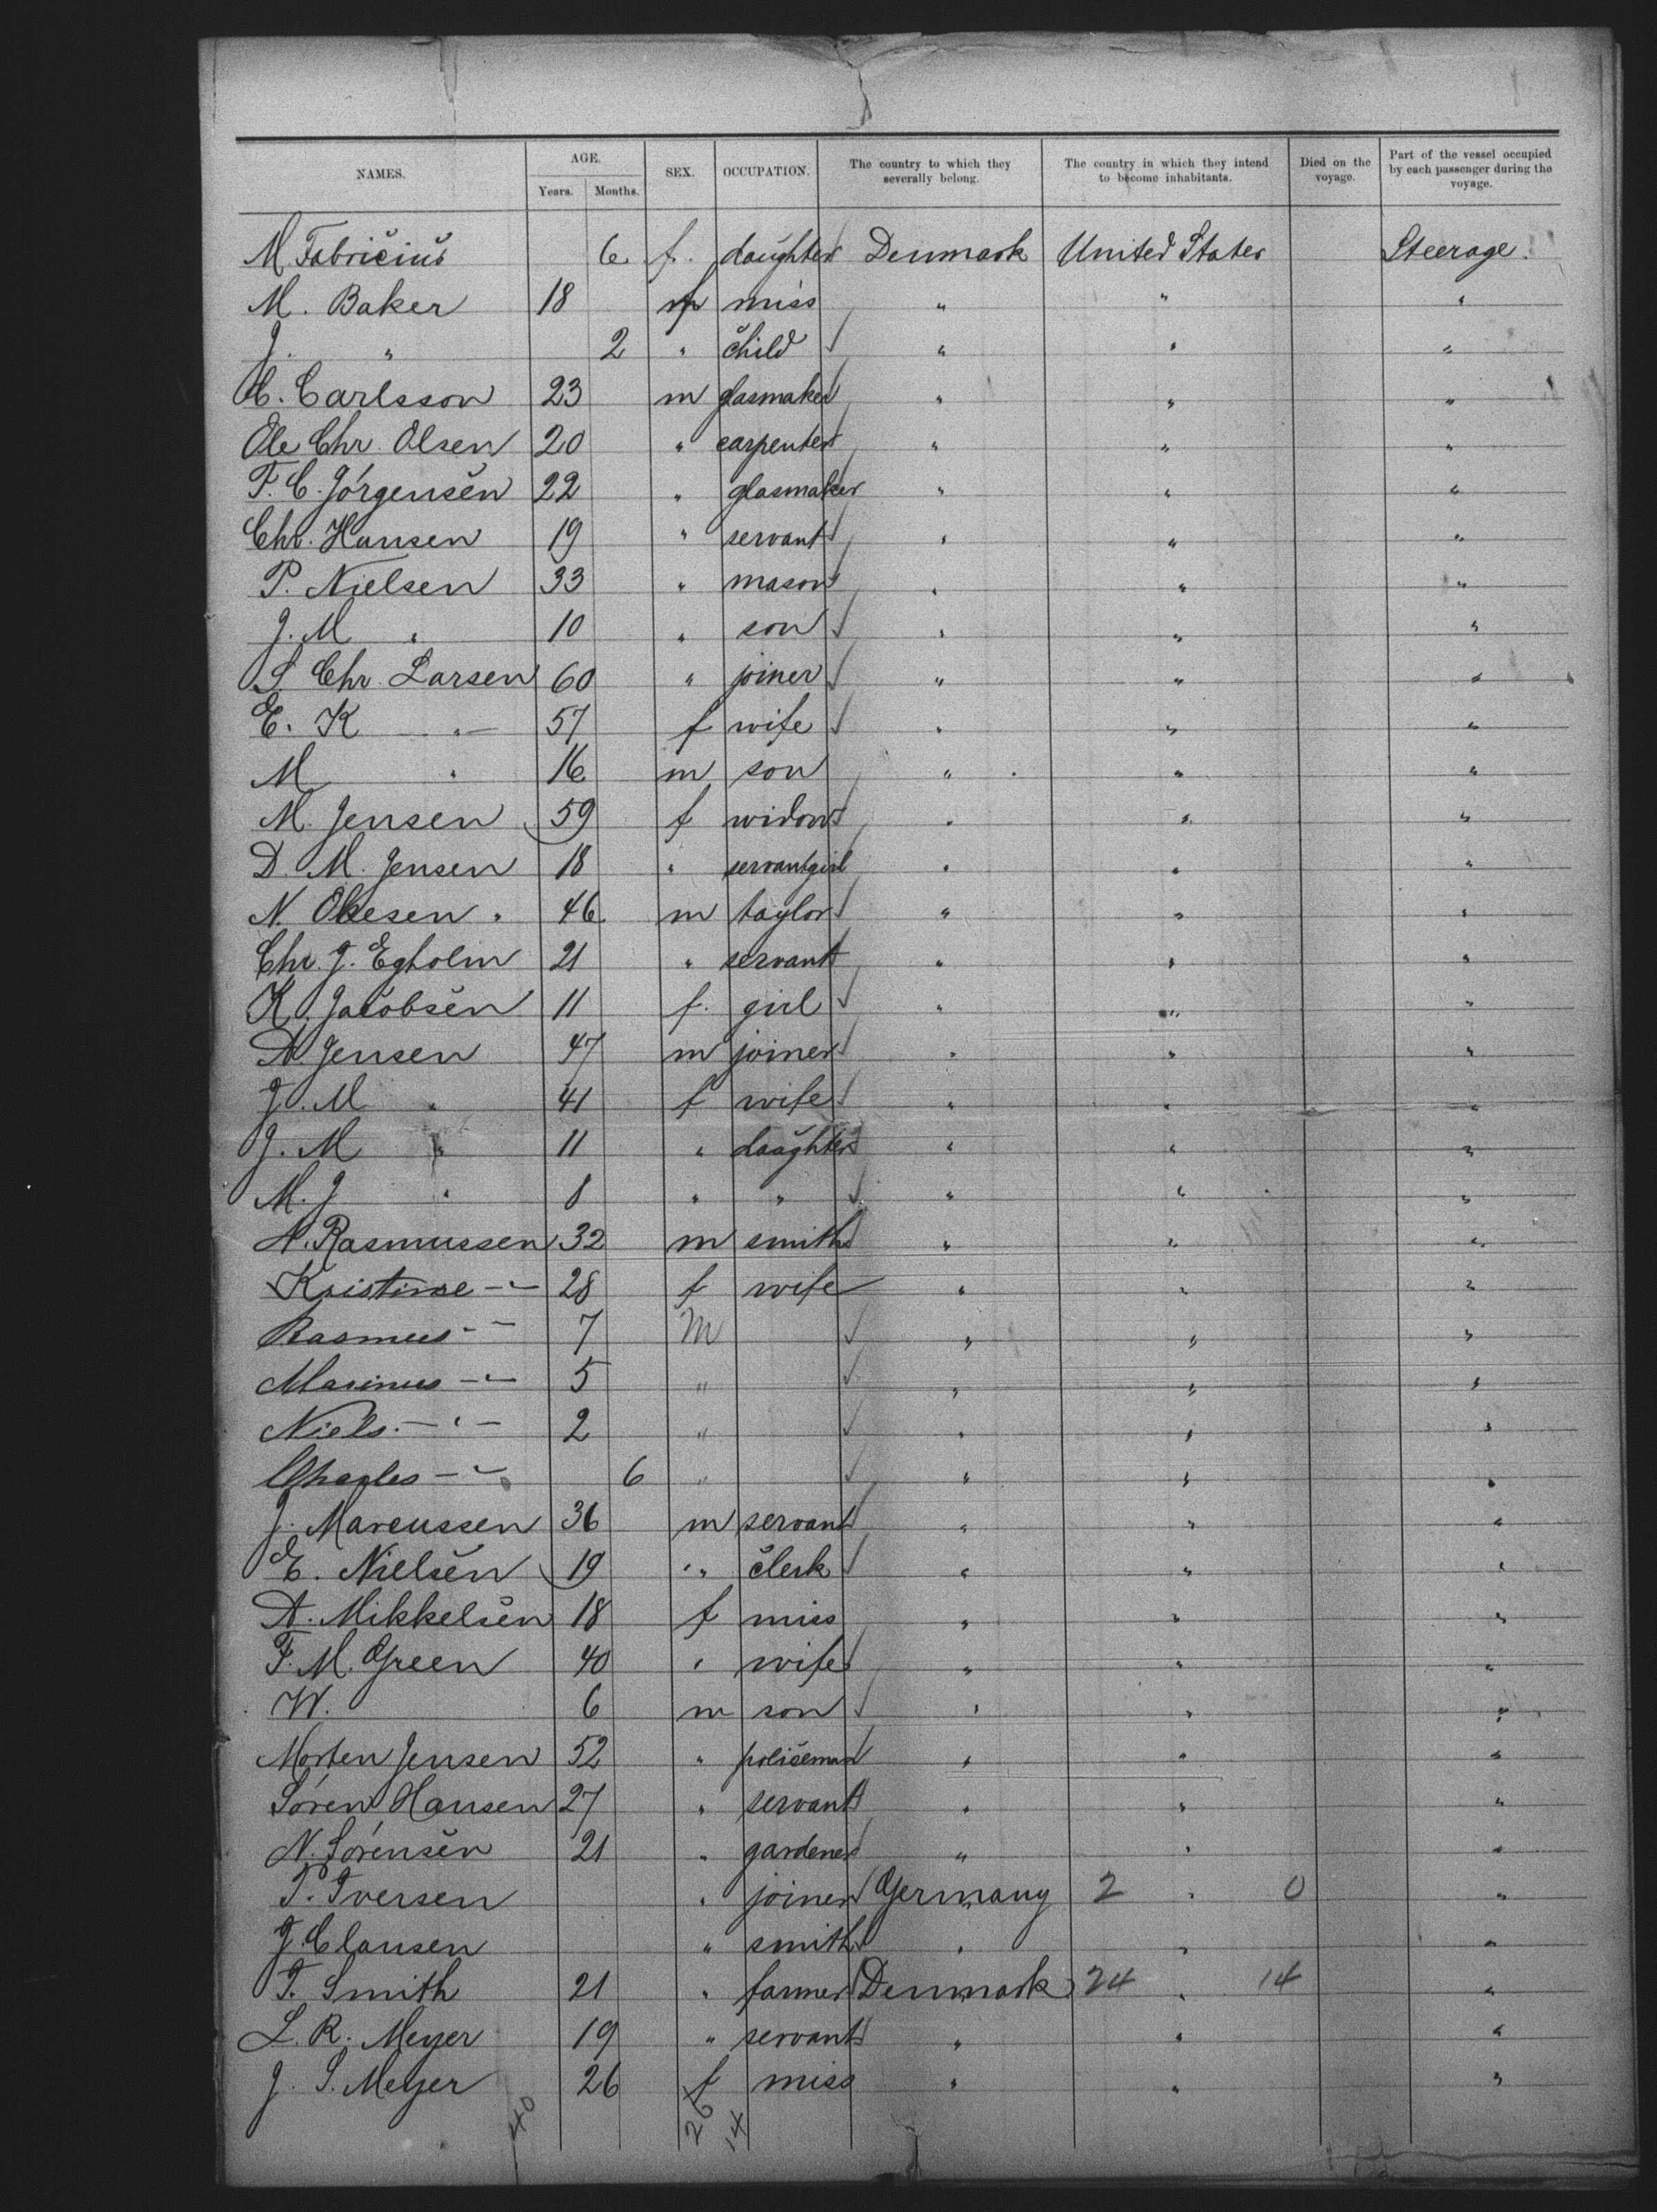 NAMES. AGE. Years. Months. SEX. OCCUPATION. The country to which they severally belong. The country in which they intend to become inhabitants. Died on the voyage. Part of the vessel occupied by each passenger during the voyage.
M Fabricius 6 f. daughter Denmark United States Steerage.
M. Baker 18 f miss " " "
J. " 2 " child " " "
C. Carlsson 23 m glasmaker " " "
Ole Chr. Olsen 20 " carpenter " " "
F. C. Jörgensen 22 " glasmaker " " "
Chr. Hansen 19 " servant " " "
P. Nielsen 33 " mason " " "
J. M " 10 " son " " "
S. Chr. Larsen 60 " joiner " " "
E. K — " — 57 f wife " " "
M " 16 m son " " "
M. Jensen 59 f widow " " "
D. M. Jensen 18 " servantgirl " " "
N. Okesen 46 m taylor " " "
Chr. J. Egholm 21 " servant " " "
K. Jacobsen 11 f. girl " " "
A. Jensen 47 m joiner " " "
J. M " 41 f wife " " "
J. M " 11 " daughter " " "
M. J " 8 " " " " "
A. Rasmussen 32 m smith " " "
Kristine — " — 28 f wife " " "
Rasmus — " — 7 M " " "
Marinus — " — 5 " " " "
Niels. — " — 2 " " " "
Charles — " — 6 " " " "
J. Marcussen 36 m servant " " "
E. Nielsen 19 " clerk " " "
A. Mikkelsen 18 f miss " " "
F. M. Green 40 " wife " " "
W. 6 m son " " "
Morten Jensen 52 " policeman " " "
Sören Hansen 27 " servant " " "
N. Sörensen 21 " gardener " " "
P. Iversen " joiner Germany 2 " 0 "
J. Clausen " smith " " "
T. Smith 21 " farmer Denmark 24 " 14 "
L. R. Meyer 19 " servant " " "
J. S. Meyer 26 f miss " " "
40 26 14